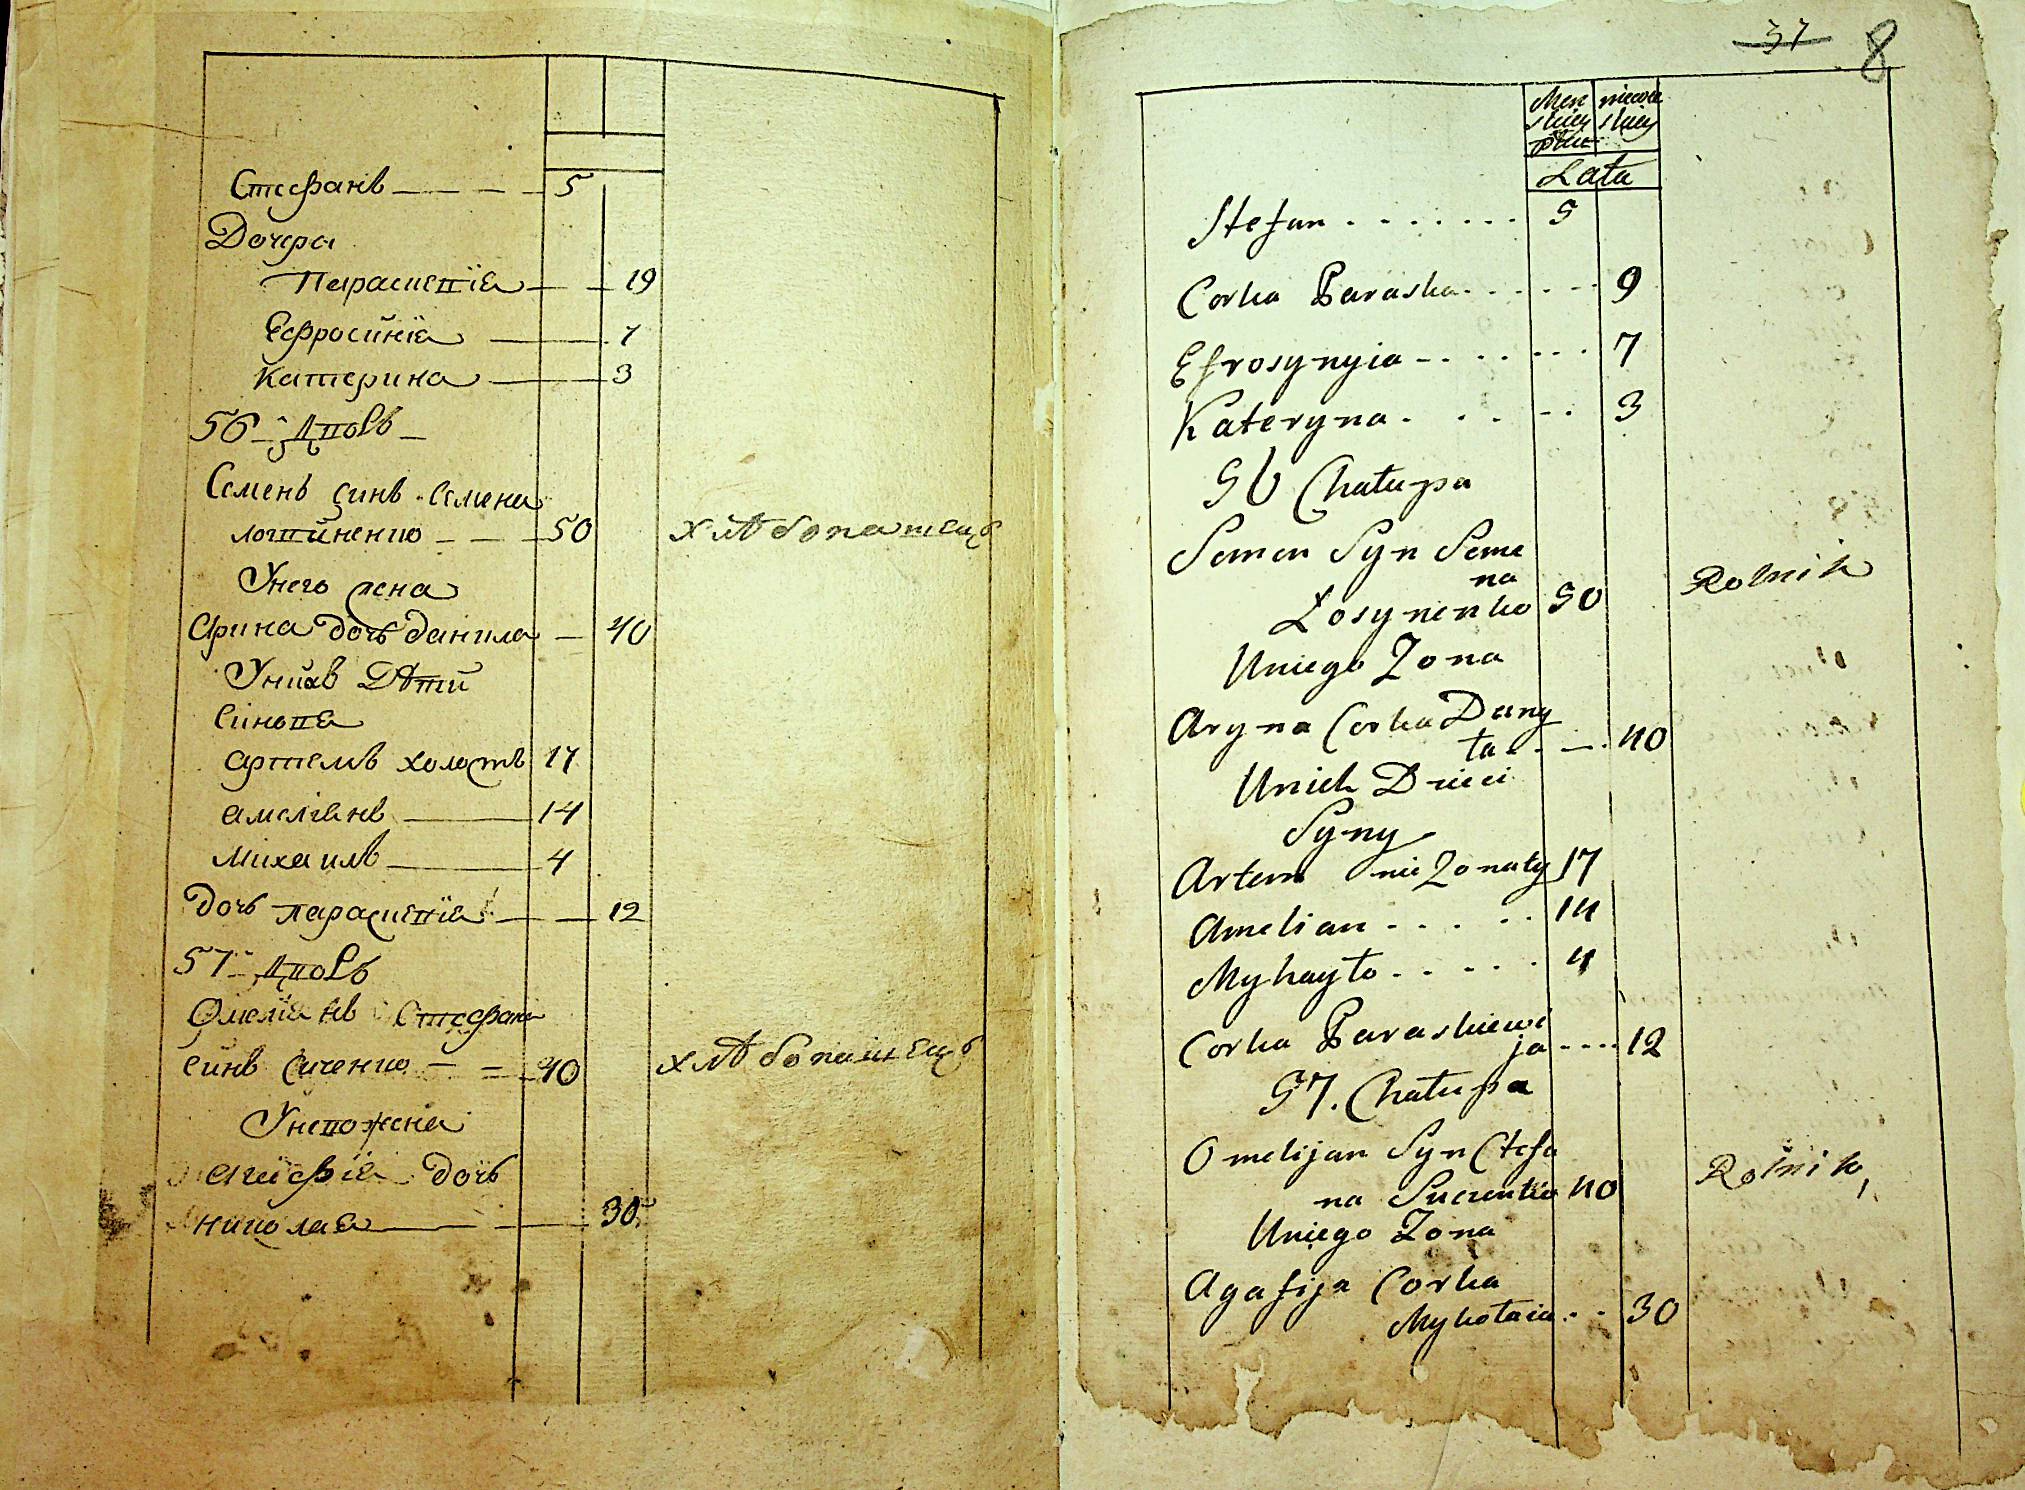 Стефанъ — — — 5
Дочера
Параскевiя — — 19
Ефросинiя — 7
Катерина — 3
56 - Дворъ -
Семенъ синъ Семена
Лосиненко - - - 50 хлѣбопашецъ
Унего жена
Арина дочь данила — 40
Унихъ Дѣти
Синовя
артемъ холостъ 17
амелiянъ — 14
Михаилъ — 4
Дочь параскевiя — — 12
57 - Дворъ
Омелiянъ Стефана
синъ - - - 40 хлѣбопашецъ
Унего жена
агафiя дочь
николая — — 30
37 8
Lata
Stefan . . . . . . . 5
Corka Paraska . . . . . . 9
Efrosynyia - . . . . . . . 7
Kateryna . . . . - . 3
56 Chałupa
Semen Syn Seme
na
Łosynenko 50 Rolnik
Uniego Zona
Aryna Corka Dany
ła . . - . 40
Unich Dzieci
Syny
Artem nieZonaty 17
Amelian . . . . . . 14
Myhayło . . . . . 4
Corka Paraskiewi
ja . . . . 12
57. Chałupa
Omelijan Syn Stefa
na 40 Rolnik,
Uniego Zona
Agafija Corka
Mykołaia . . . 30